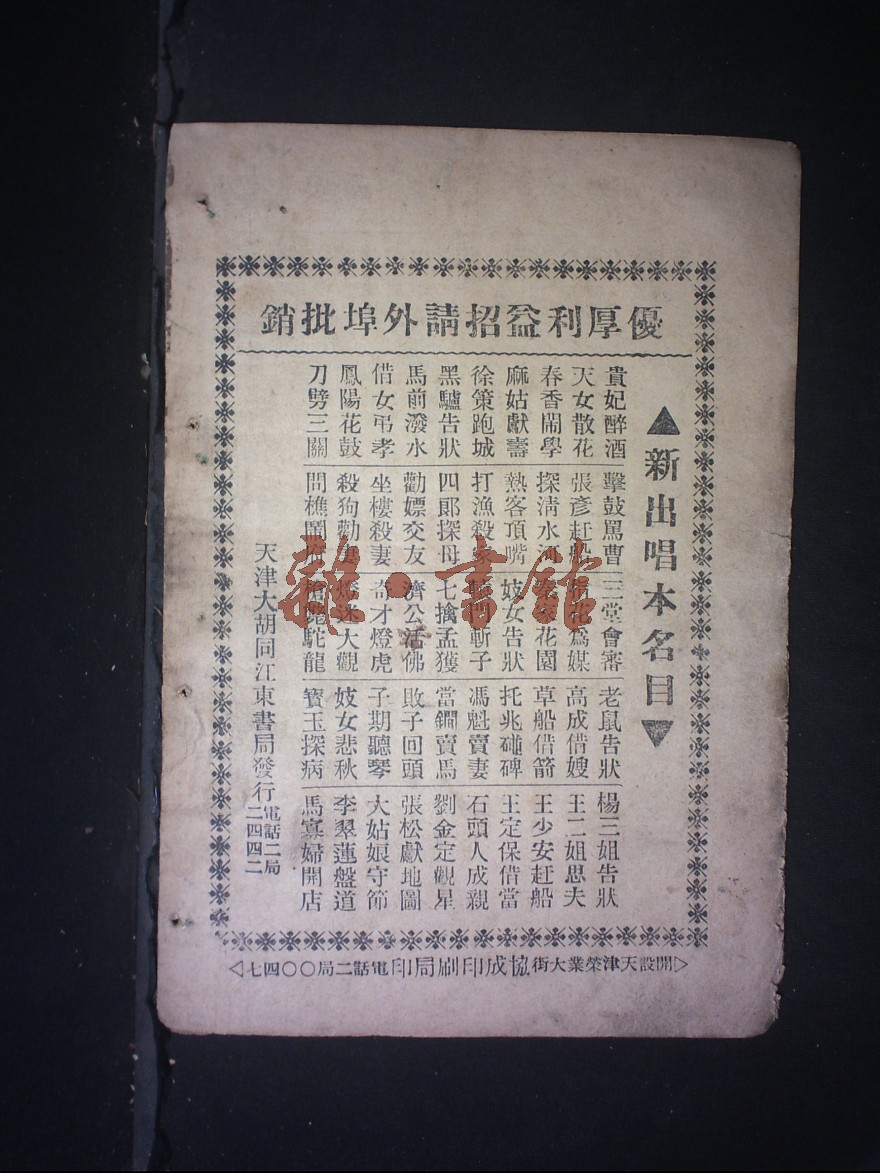 優厚利益招請外埠批銷
▲新出唱本名目▼
貴妃醉酒 擊鼓罵曹 三堂會審 老鼠告狀 楊三姐告狀
天女散花 張彥赶船 花爲媒 高成借嫂 王二姐思夫
春香鬧學 探淸水河 花園 草船借箭 王少安赶船
麻姑獻壽 熱客頂嘴 妓女告狀 托兆碰碑 王定保借當
徐策跑城 打漁殺家 門斬子 馮魁賣妻 石頭人成親
黑驢告狀 四郎探母 七擒孟獲 當鐧賣馬 劉金定觀星
馬前潑水 勸嫖交友 濟公活佛 敗子回頭 張松獻地圖
借女弔孝 坐樓殺妻 奇才燈虎 子期聽琴 大姑娘守節
鳳陽花鼓 殺狗勸妻 燈迷大觀 妓女悲秋 李翠蓮盤道
刀劈三關 問樵鬧府 槍斃駝龍 寶玉探病 馬寡婦開店
天津大胡同江東書局發行 電話二局二四四二
▷開設天津榮業大街協成印刷局印電話二局〇〇四七◁
雜·書館